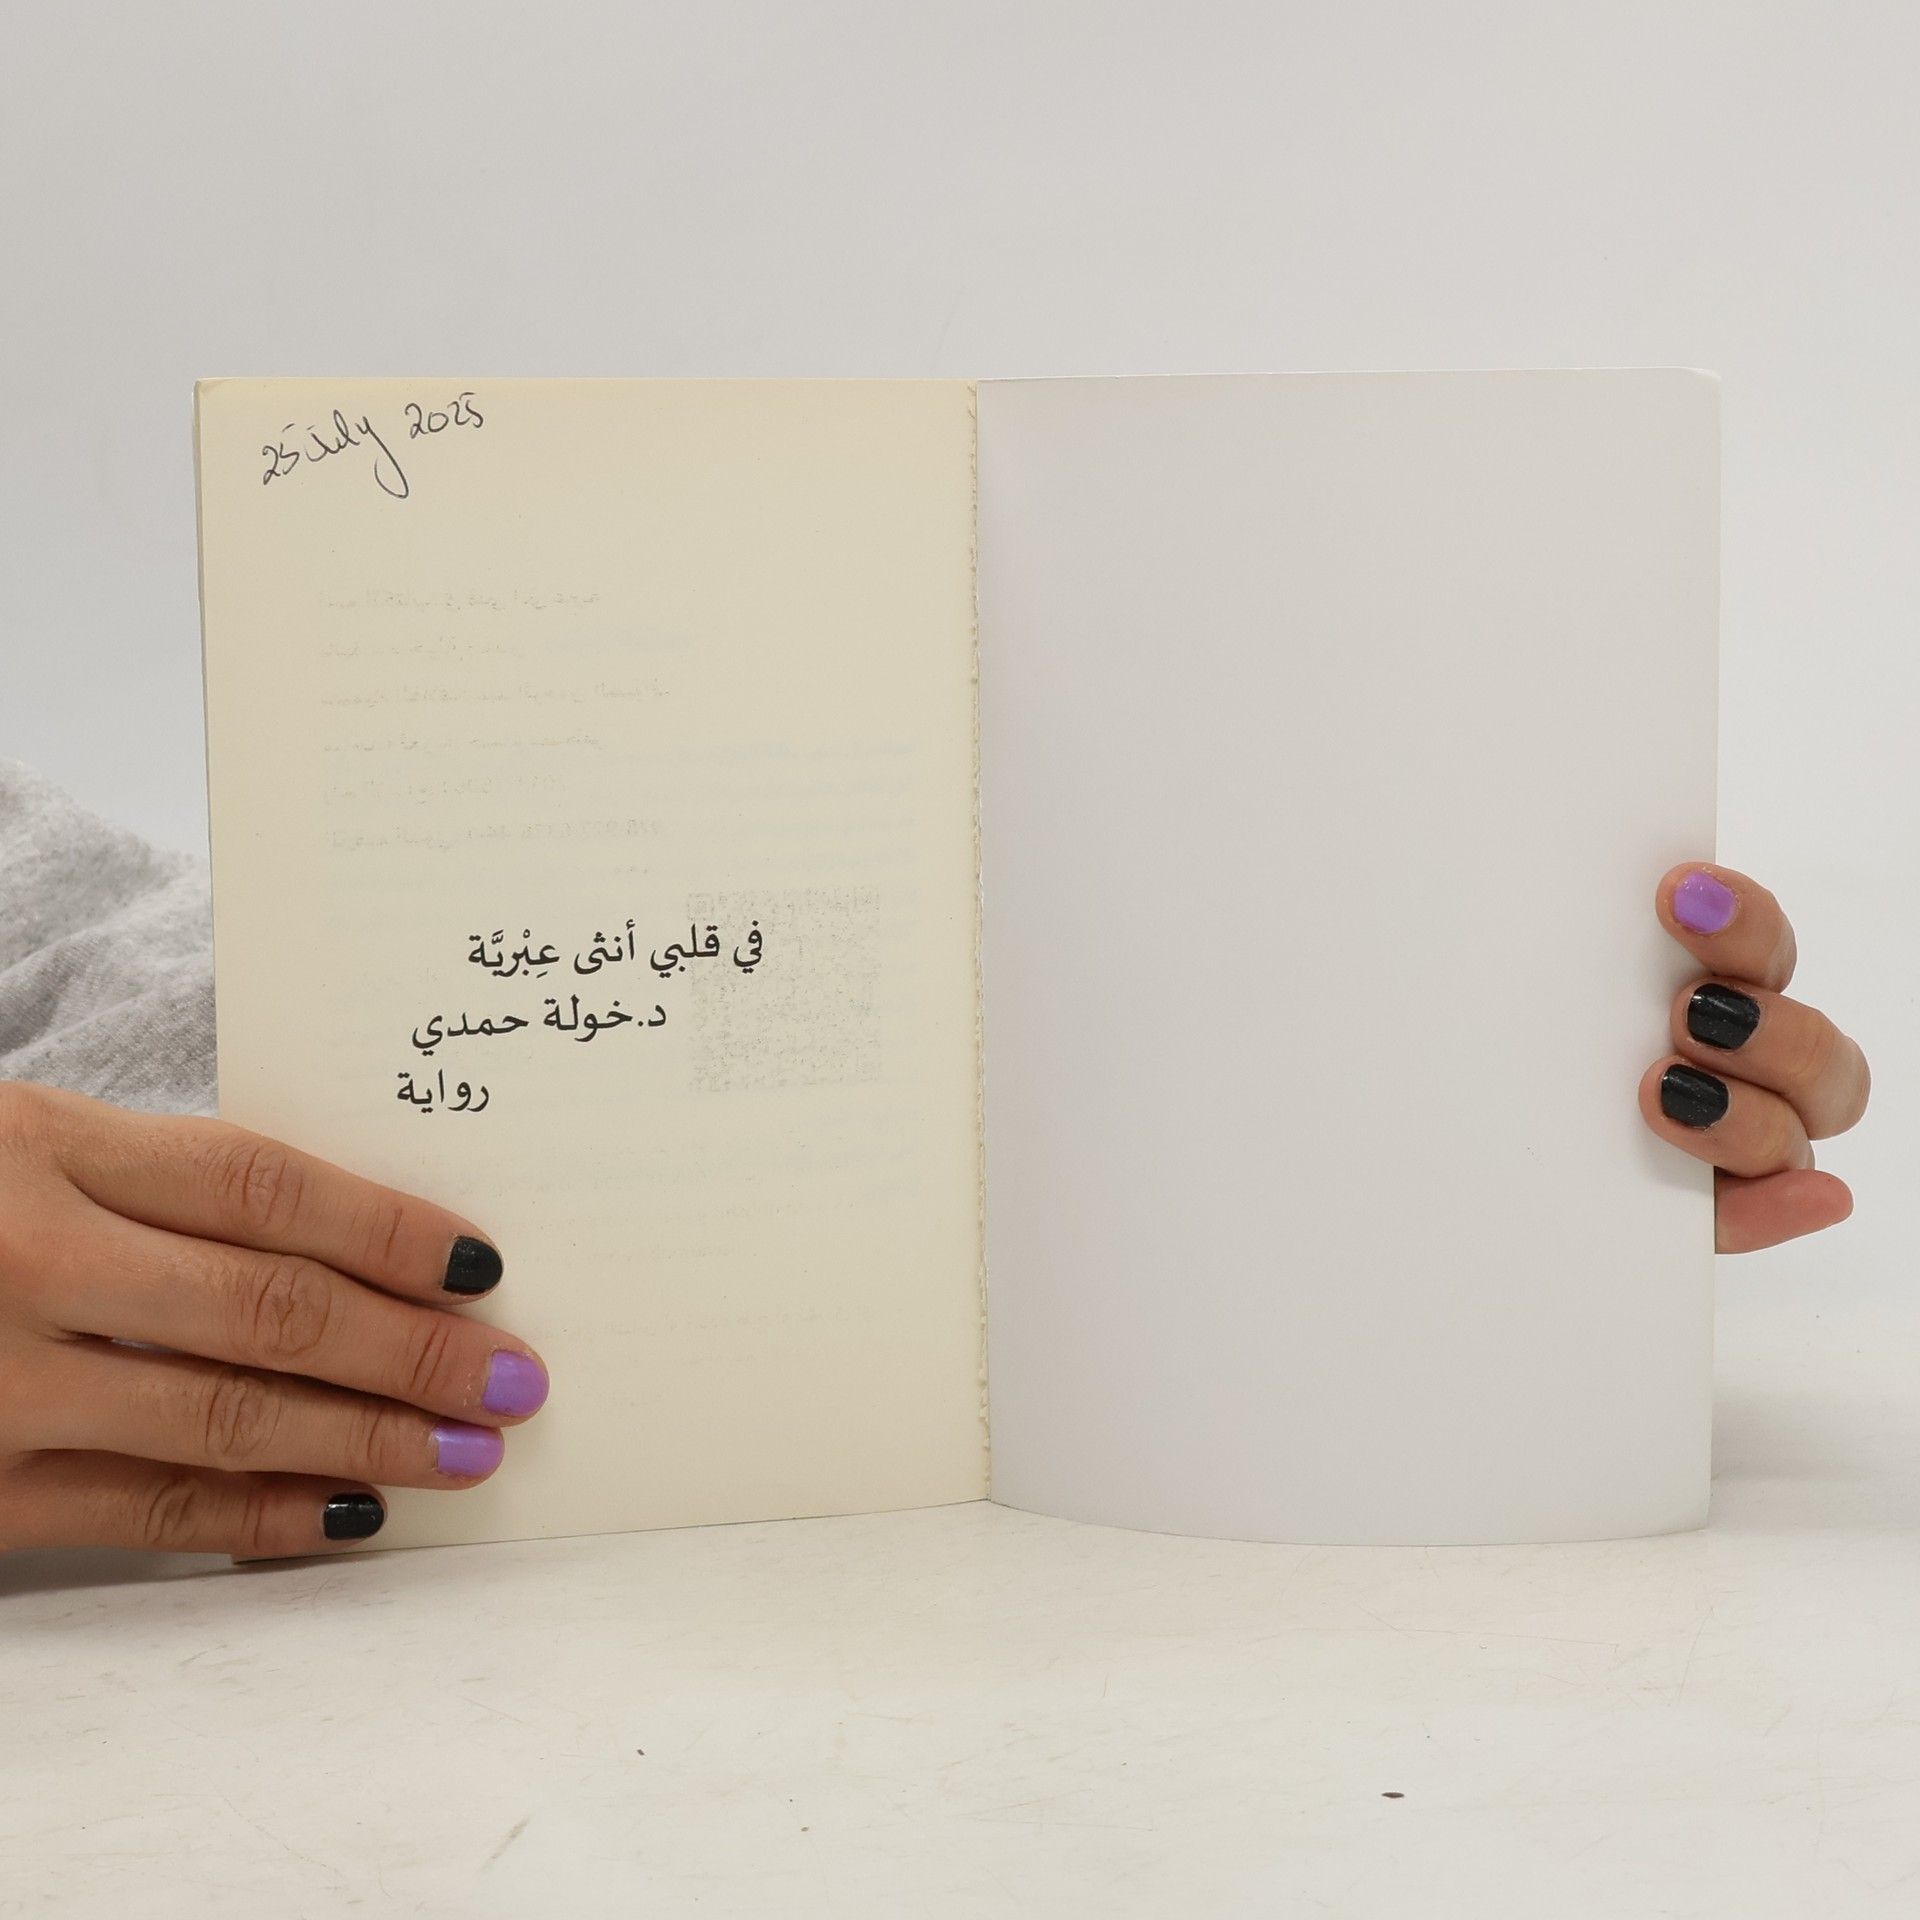 25 July 2025
في قلبي أنثى عِبْريَّة
د.خولة حمدي
رواية